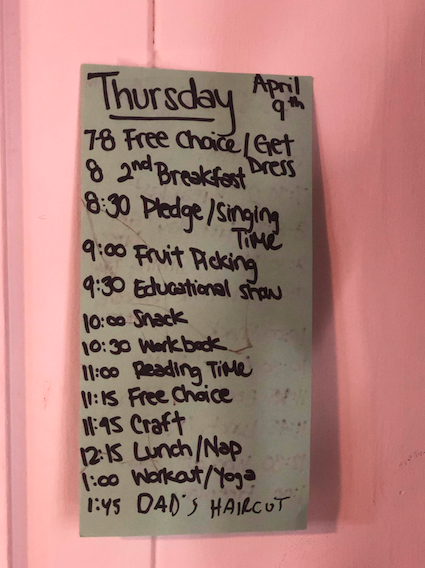 Thursday April 9th
7-8 Free Choice/Get Dress
8 2nd Breakfast
8:30 Pledge/Singing Time
9:00 Fruit Picking
9:30 Educational show
10:00 Snack
10:30 Workbook
11:00 Reading Time
11:15 Free Choice
11:45 Craft
12:15 Lunch/Nap
1:00 Workout/Yoga
1:45 DAD'S HAIRCUT